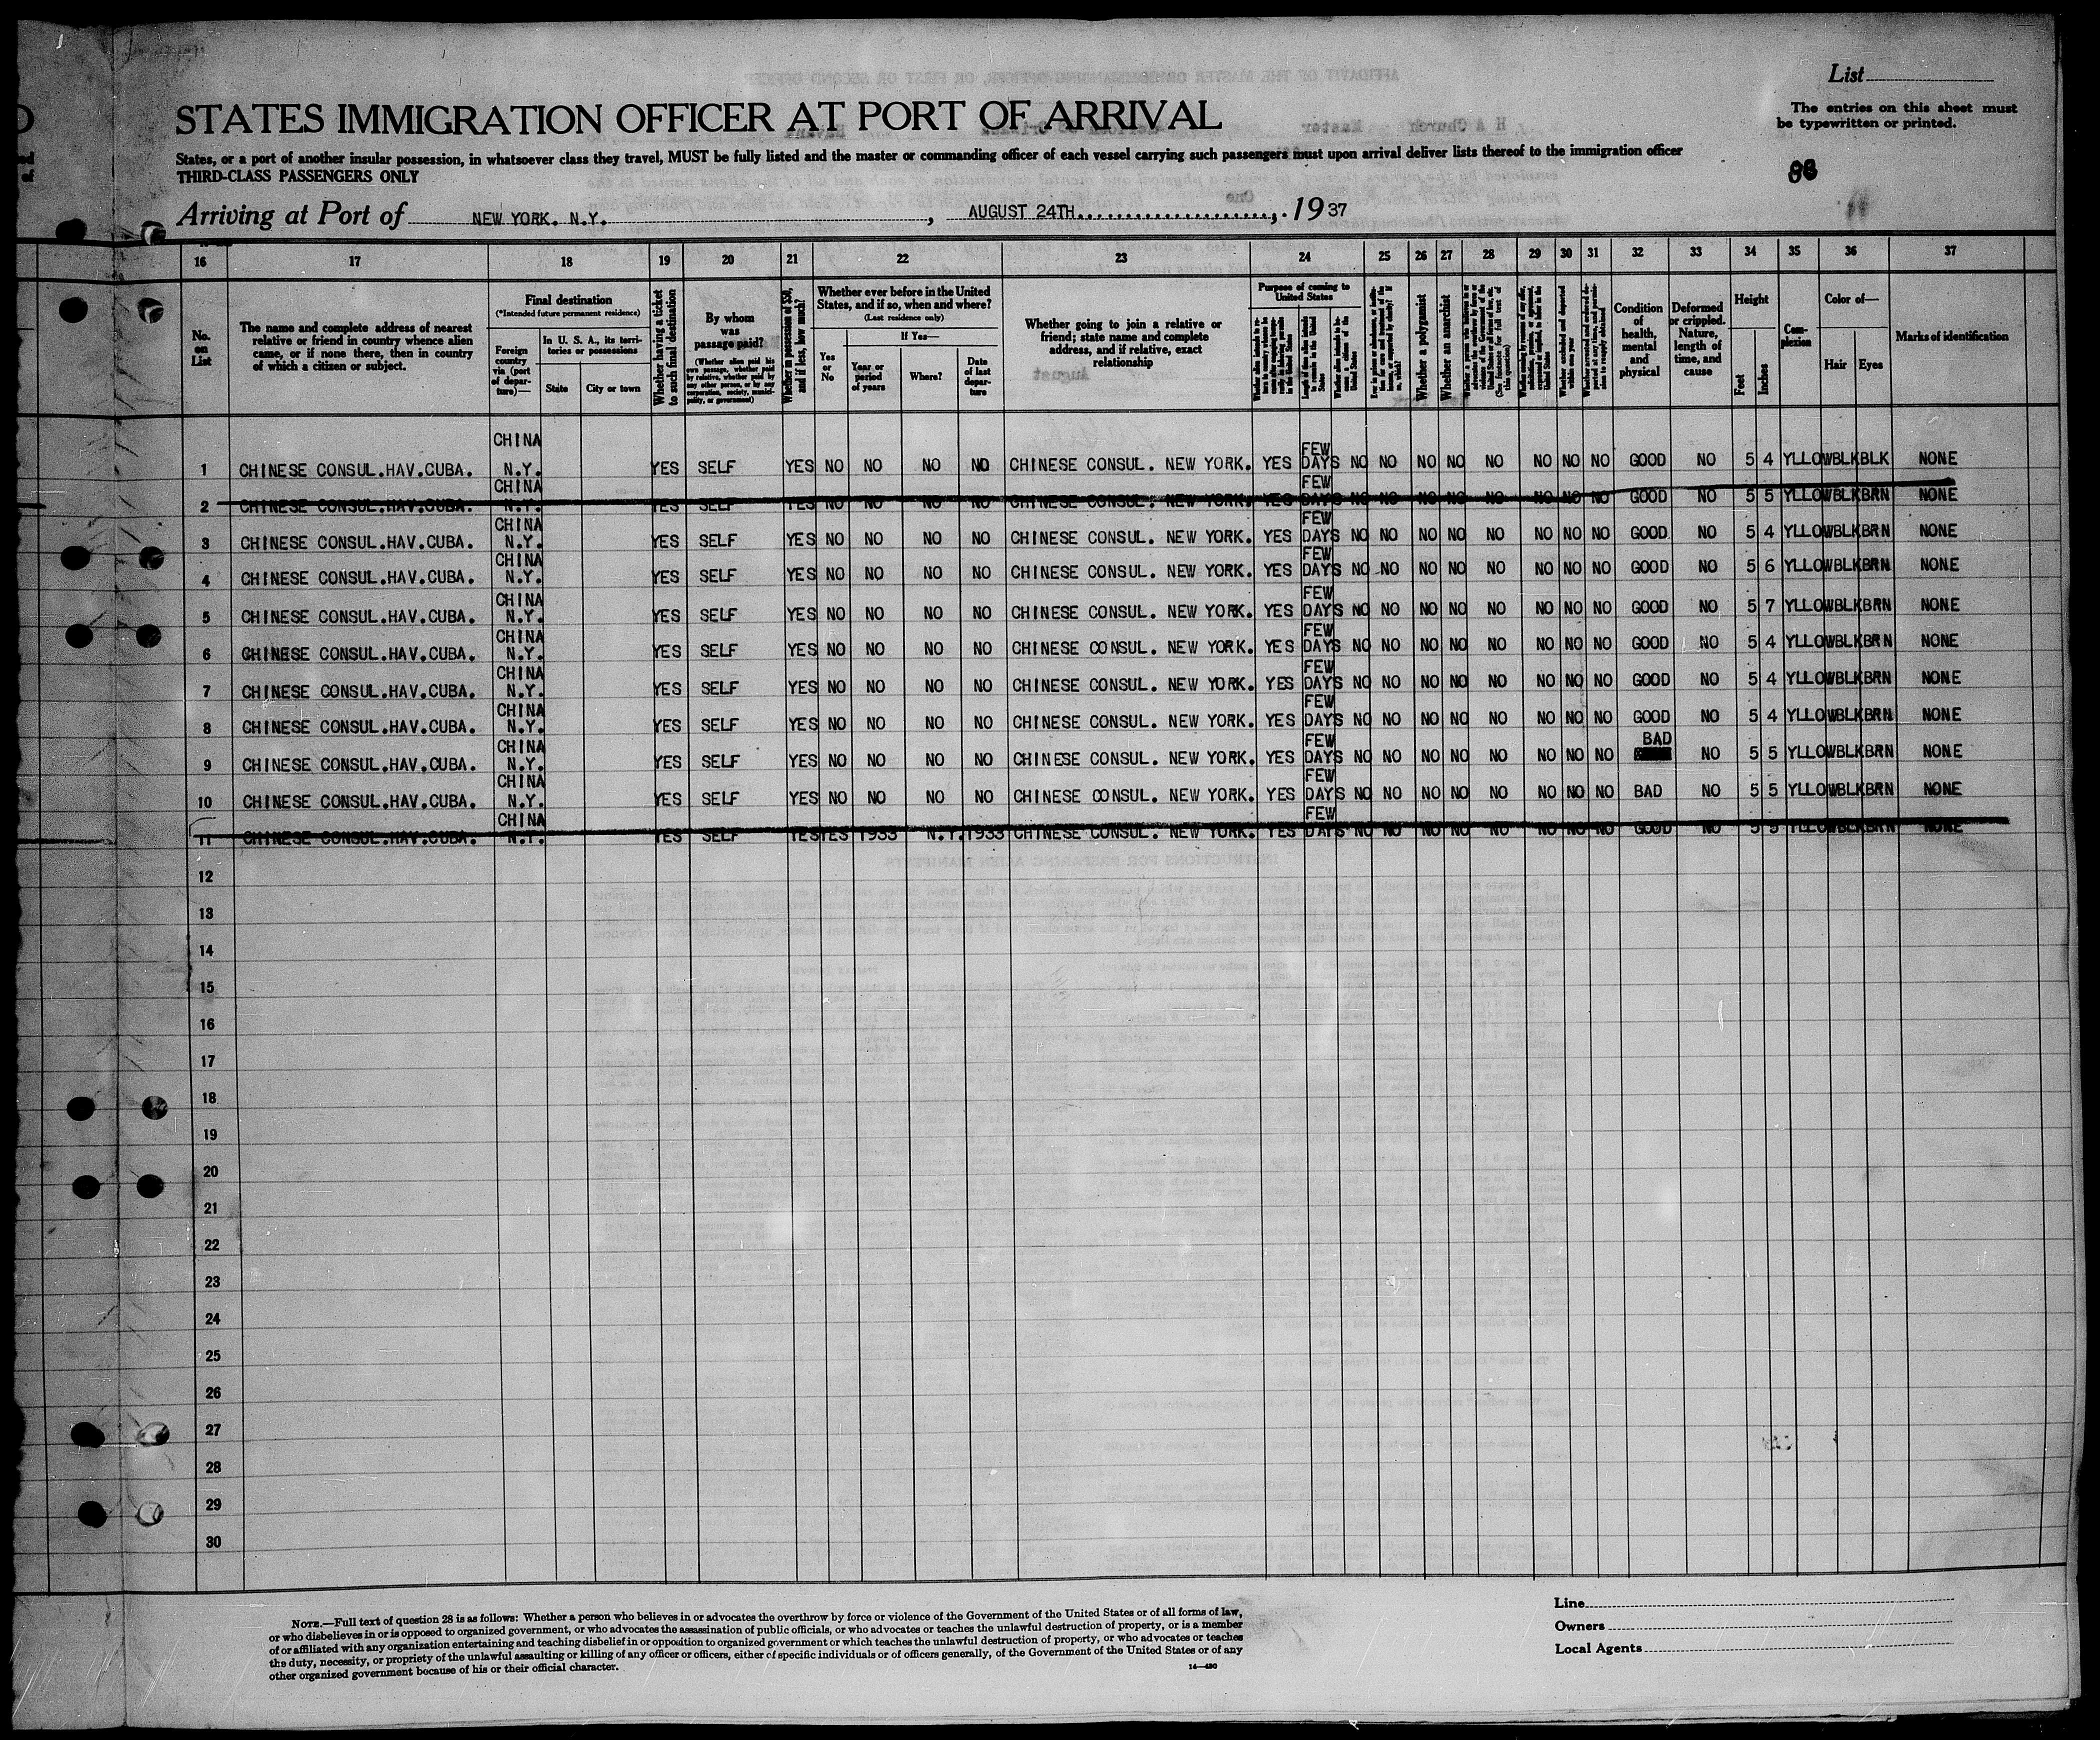 List
STATES IMMIGRATION OFFICER AT PORT OF ARRIVAL
The entries on this sheet must
be typewritten or printed.
States, or a port of another insular possession, in whatsoever class they travel, MUST be fully listed and the master or commanding officer of each vessel carrying such passengers must upon arrival deliver lists thereof to the immigration officer
THIRD-CLASS PASSENGERS ONLY
Arriving at Port of NEW YORK. N.Y. , AUGUST 24TH , 1937
16 17 18 19 20 21 22 23 24 25 26 27 28 29 30 31 32 33 34 35 36 37
No. on List
The name and complete address of nearest
relative or friend in country whence alien
came, or if none there, then in country
of which a citizen or subject.
Final destination
(*Intended future permanent residence)
Foreign country via (port of departure)—
In U. S. A., its territories or possessions
State City or town
Whether having a ticket to such final destination
By whom was passage paid?
(Whether alien paid his own passage, whether paid by relative, whether paid by any other person, or by any corporation, society, municipality, or government)
Whether in possession of $50, and if less, how much?
Whether ever before in the United
States, and if so, when and where?
(Last residence only)
Yes or No
If Yes—
Year or period of years Where? Date of last departure
Whether going to join a relative or
friend; state name and complete
address, and if relative, exact
relationship
Purpose of coming to
United States
Whether a polygamist
Whether an anarchist
Condition of health, mental and physical
Deformed or crippled. Nature, length of time, and cause
Height
Feet Inches
Complexion
Color of—
Hair Eyes
Marks of identification
1 CHINESE CONSUL.HAV.CUBA. CHINA N.Y. YES SELF YES NO NO NO NO CHINESE CONSUL. NEW YORK. YES FEW DAYS NO NO NO NO NO NO NO NO GOOD NO 5 4 YLLOW BLK BLK NONE
2 CHINESE CONSUL.HAV.CUBA. CHINA N.Y. YES SELF YES NO NO NO NO CHINESE CONSUL. NEW YORK. YES FEW DAYS NO NO NO NO NO NO NO NO GOOD NO 5 5 YLLOW BLK BRN NONE
3 CHINESE CONSUL.HAV.CUBA. CHINA N.Y. YES SELF YES NO NO NO NO CHINESE CONSUL. NEW YORK. YES FEW DAYS NO NO NO NO NO NO NO NO GOOD NO 5 4 YLLOW BLK BRN NONE
4 CHINESE CONSUL.HAV.CUBA. CHINA N.Y. YES SELF YES NO NO NO NO CHINESE CONSUL. NEW YORK. YES FEW DAYS NO NO NO NO NO NO NO NO GOOD NO 5 6 YLLOW BLK BRN NONE
5 CHINESE CONSUL.HAV.CUBA. CHINA N.Y. YES SELF YES NO NO NO NO CHINESE CONSUL. NEW YORK. YES FEW DAYS NO NO NO NO NO NO NO NO GOOD NO 5 7 YLLOW BLK BRN NONE
6 CHINESE CONSUL.HAV.CUBA. CHINA N.Y. YES SELF YES NO NO NO NO CHINESE CONSUL. NEW YORK. YES FEW DAYS NO NO NO NO NO NO NO NO GOOD NO 5 4 YLLOW BLK BRN NONE
7 CHINESE CONSUL.HAV.CUBA. CHINA N.Y. YES SELF YES NO NO NO NO CHINESE CONSUL. NEW YORK. YES FEW DAYS NO NO NO NO NO NO NO NO GOOD NO 5 4 YLLOW BLK BRN NONE
8 CHINESE CONSUL.HAV.CUBA. CHINA N.Y. YES SELF YES NO NO NO NO CHINESE CONSUL. NEW YORK. YES FEW DAYS NO NO NO NO NO NO NO NO GOOD NO 5 4 YLLOW BLK BRN NONE
9 CHINESE CONSUL.HAV.CUBA. CHINA N.Y. YES SELF YES NO NO NO NO CHINESE CONSUL. NEW YORK. YES FEW DAYS NO NO NO NO NO NO NO NO BAD NO 5 5 YLLOW BLK BRN NONE
10 CHINESE CONSUL.HAV.CUBA. CHINA N.Y. YES SELF YES NO NO NO NO CHINESE CONSUL. NEW YORK. YES FEW DAYS NO NO NO NO NO NO NO NO BAD NO 5 5 YLLOW BLK BRN NONE
11 CHINESE CONSUL.HAV.CUBA. CHINA N.Y. YES SELF YES YES 1933 N.Y. 1933 CHINESE CONSUL. NEW YORK. YES FEW DAYS NO NO NO NO NO NO NO NO GOOD NO 5 5 YLLOW BLK BRN NONE
12
13
14
15
16
17
18
19
20
21
22
23
24
25
26
27
28
29
30
NOTE.—Full text of question 28 is as follows: Whether a person who believes in or advocates the overthrow by force or violence of the Government of the United States or of all forms of law,
or who disbelieves in or is opposed to organized government, or who advocates the assassination of public officials, or who advocates or teaches the unlawful destruction of property, or is a member
of or affiliated with any organization entertaining and teaching disbelief in or opposition to organized government or which teaches the unlawful destruction of property, or who advocates or teaches
the duty, necessity, or propriety of the unlawful assaulting or killing of any officer or officers, either of specific individuals or of officers generally, of the Government of the United States or of any
other organized government because of his or their official character.
14—490
Line
Owners
Local Agents